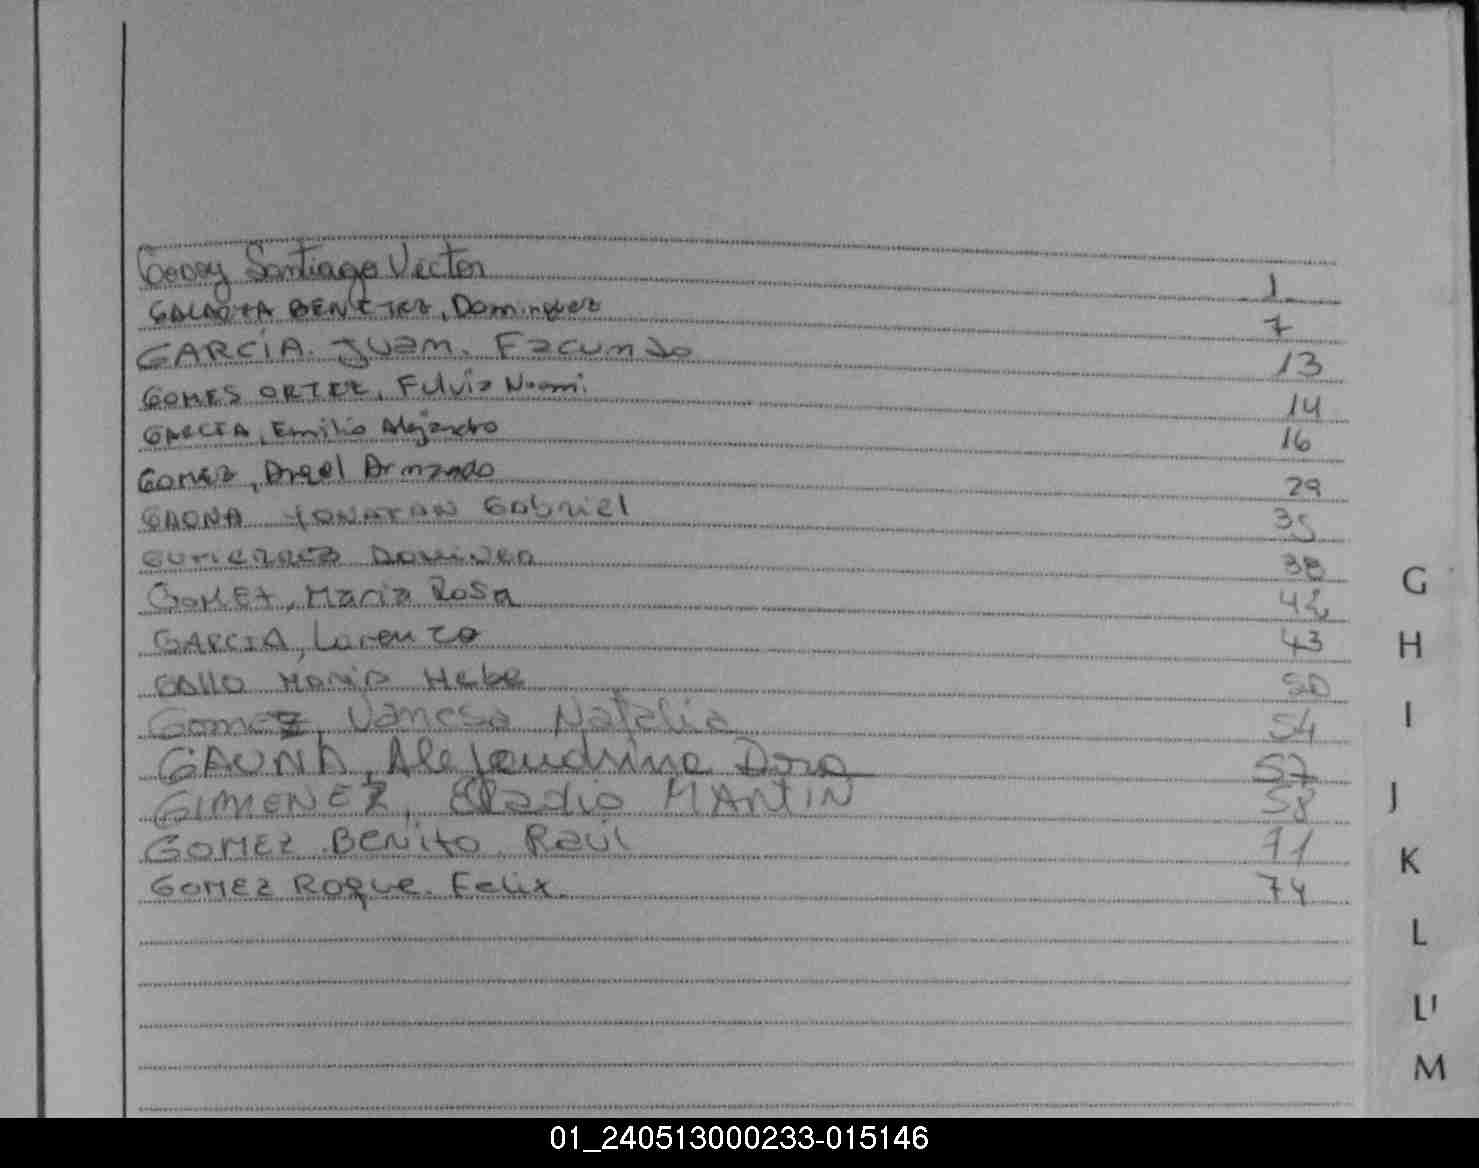 Godoy Santiago Victor 1
GALARZA BENITEZ, Dominguez 7
GARCÍA. Juam. Facundo 13
GOMES ORTIZ, Fulvia Noemi. 14
GARCIA, Emilio Alejandro 16
GOMEZ, Angel Armando 29
GAONA YONATAN Gabriel 35
GUTIERREZ DOMINGA 38
GOMEZ, Maria Rosa 42
GARCIA, Lorenzo 43
GALLO Maria Hebe 50
Gomez Vanesa Natalia 54
GAUNA, Alejandrina Dora 57
GIMENEZ, Eladio MARTIN 58
GOMEZ BENito Raúl 71
GOMEZ ROQUE. Felix. 74
G
H
I
J
K
L
Ll
M
01_240513000233-015146